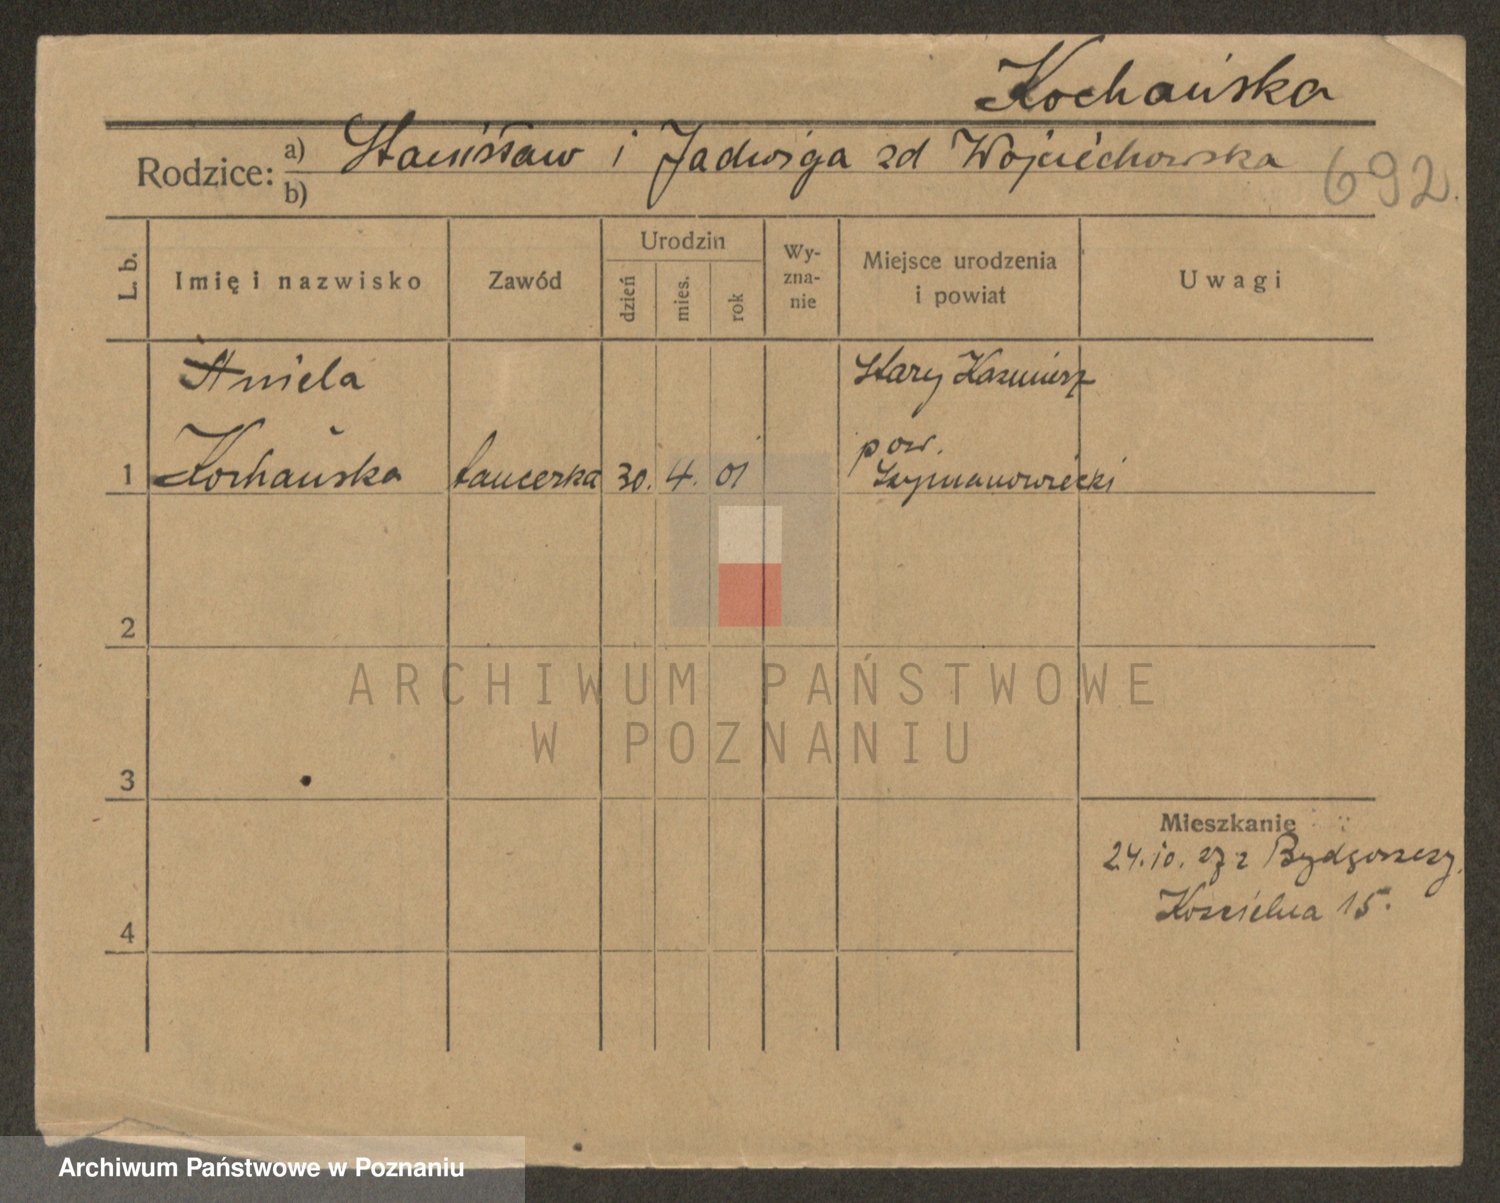 Kochańska
Rodzice: a) Stanisław i Jadwiga zd Wojciechowska
b)
692.
L. b.
Imię i nazwisko
Zawód
Urodzin
dzień
mies.
rok
Wy-
zna-
nie
Miejsce urodzenia
i powiat
Uwagi
Aniela
Stary Kazimierz
pow.
1 Kochańska tancerka 30. 4. 01 Szymanowiecki
2
ARCHIWUM PAŃSTWOWE
W POZNANIU
3
Mieszkanie
24.10. 27 z Bydgoszczy.
Kościelna 15.
4
Archiwum Państwowe w Poznaniu